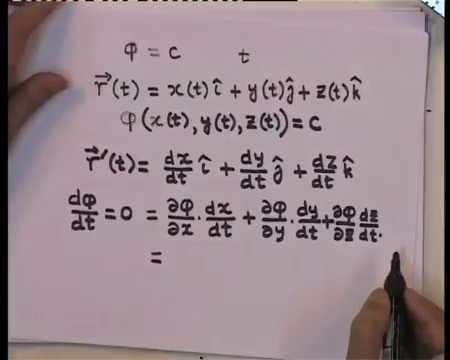 φ = c t
r⃗(t) = x(t)î + y(t)ĵ + z(t)k̂
φ(x(t), y(t), z(t)) = c
r⃗'(t) = dx/dt î + dy/dt ĵ + dz/dt k̂
dφ/dt = 0 = ∂φ/∂x · dx/dt + ∂φ/∂y · dy/dt + ∂φ/∂z dz/dt.
=